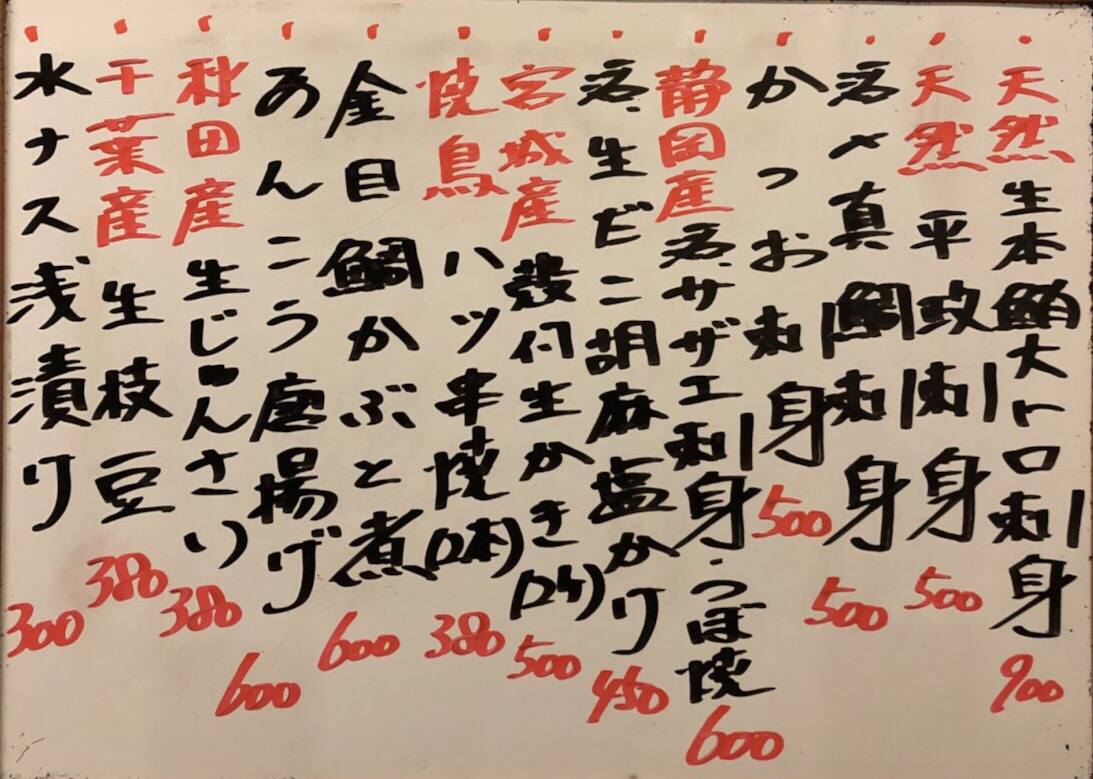 天然生本鮪大トロ刺身 900
天然 平政刺身 500
活〆真鯛刺身 500
かつお刺身 500
静岡産活サザエ刺身・つぼ焼 600
活生ビニ胡麻塩かり 450
宮城産 殻付生かき(2ケ) 500
焼鳥 ハツ串焼(2本) 380
金目鯛かぶと煮 600
あんこう唐揚げ 600
秋田産生じゅんさい 380
千葉産生枝豆 380
水ナス浅漬り 300